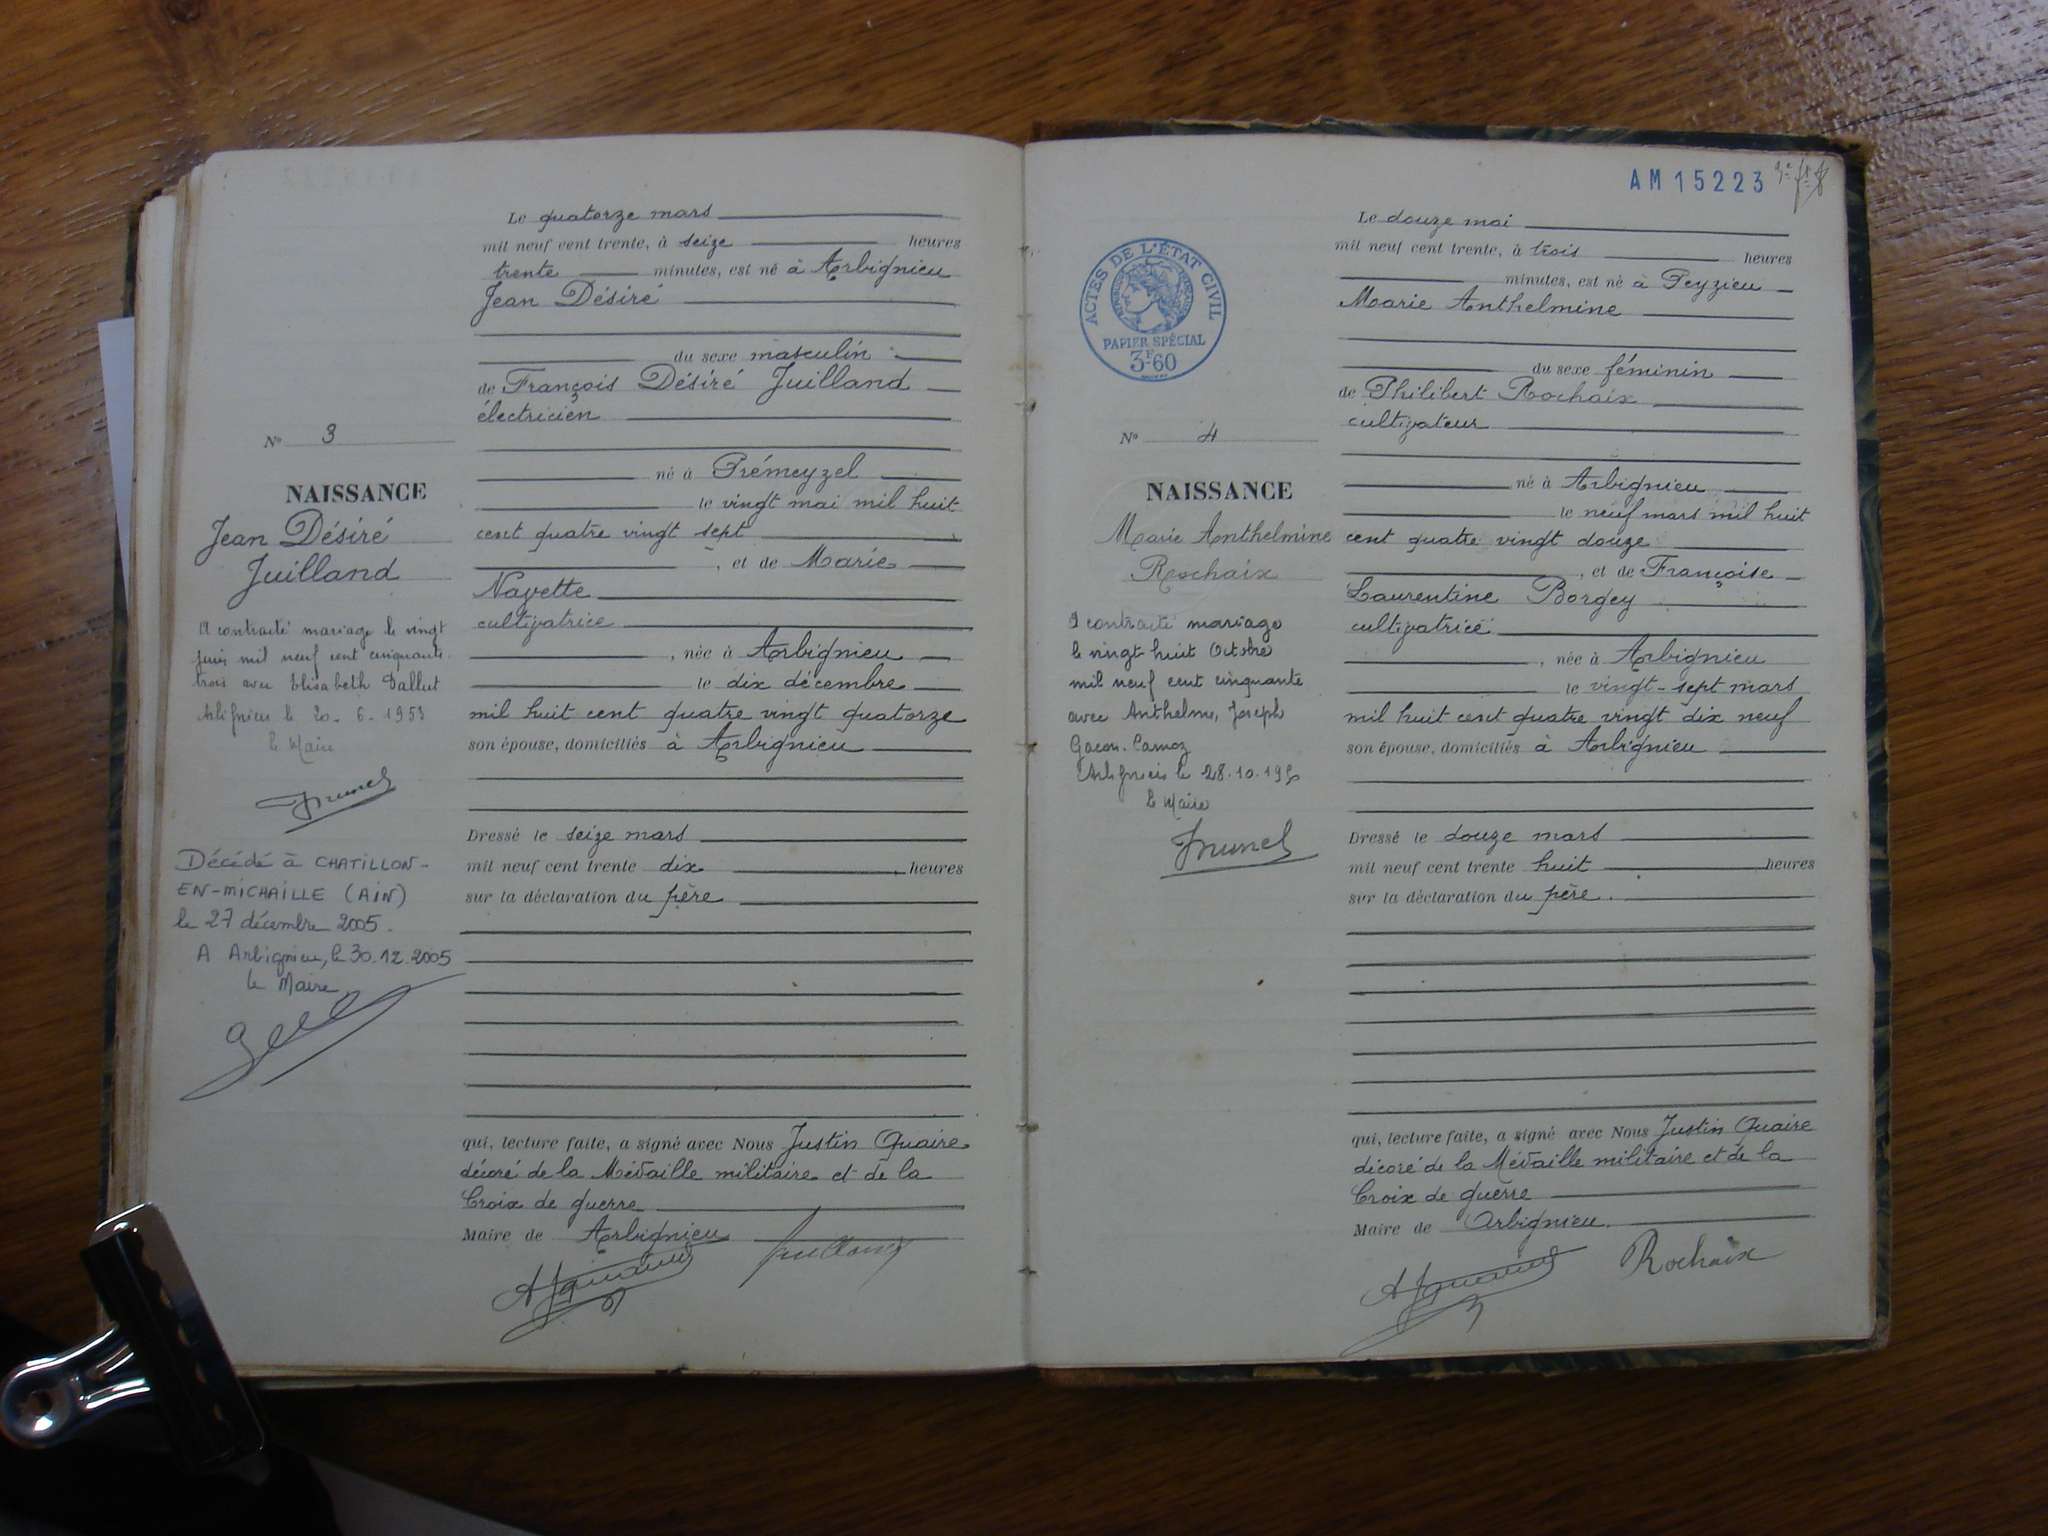 Le quatorze mars
mil neuf cent trente, à seize heures
trente minutes, est né à Arbignieu
Jean Désiré
du sexe masculin
de François Désiré Juilland
électricien
né à Prémeyzel
le vingt mai mil huit
cent quatre vingt sept
, et de Marie
Nayette
cultivatrice
, née à Arbignieu
le dix décembre
mil huit cent quatre vingt quatorze
son épouse, domiciliés à Arbignieu
Dressé le seize mars
mil neuf cent trente dix heures
sur la déclaration du père
qui, lecture faite, a signé avec Nous Justin Quaire
décoré de la Médaille militaire et de la
Croix de guerre
Maire de Arbignieu
N° 3
NAISSANCE
Jean Désiré
Juilland
A contracté mariage le vingt
juin mil neuf cent cinquante
trois avec Elisabeth Dallut
Arbignieu le 20-6-1953
le Maire
Décédé à CHATILLON-
EN-MICHAILLE (AIN)
le 27 décembre 2005.
A Arbignieu, le 30.12.2005
le Maire
AM 15223
ACTES DE L'ÉTAT CIVIL
PAPIER SPÉCIAL
3F60
Le douze mai
mil neuf cent trente, à trois heures
minutes, est né à Peyzieu
Marie Anthelmine
du sexe féminin
de Philibert Rochaix
cultivateur
né à Arbignieu
le neuf mars mil huit
cent quatre vingt douze
, et de Françoise
Laurentine Borgey
cultivatrice
, née à Arbignieu
le vingt-sept mars
mil huit cent quatre vingt dix neuf
son épouse, domiciliés à Arbignieu
Dressé le douze mars
mil neuf cent trente huit heures
sur la déclaration du père.
qui, lecture faite, a signé avec Nous Justin Quaire
décoré de la Médaille militaire et de la
Croix de guerre
Maire de Arbignieu.
Rochaix
N° 4
NAISSANCE
Marie Anthelmine
Rochaix
A contracté mariage
le vingt-huit Octobre
mil neuf cent cinquante
avec Anthelme, Joseph
Gacon-Camoz
Arbignieu le 28.10.1950
le Maire